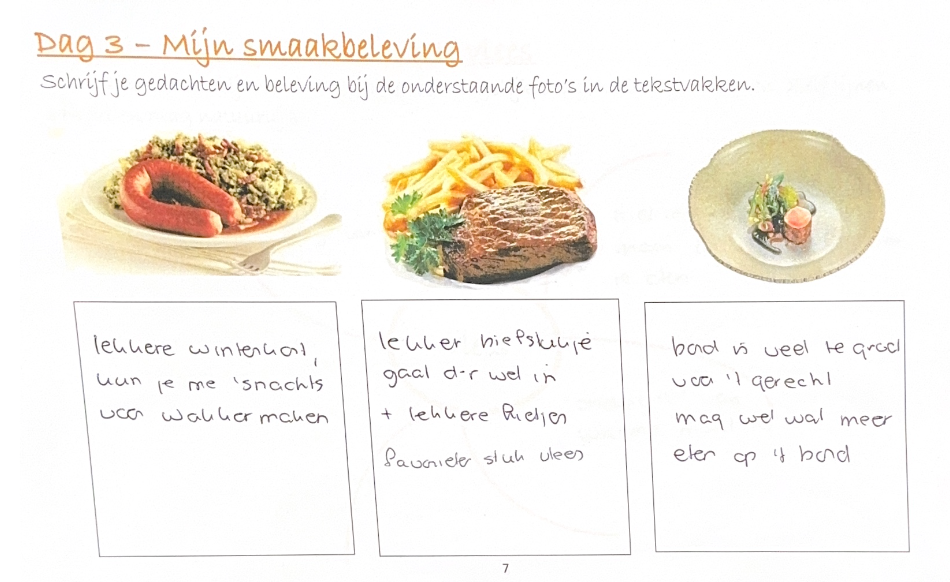 Dag 3 – Mijn smaakbeleving
Schrijf je gedachten en beleving bij de onderstaande foto's in de tekstvakken.
lekkere winterkost,
kun je me 'snachts
voor wakker maken
lekker biefstukje
gaat d-r wel in
+ lekkere frietjes
favoriete stuk vlees
bord is veel te groot
voor 't gerecht
mag wel wat meer
eten op 't bord
7